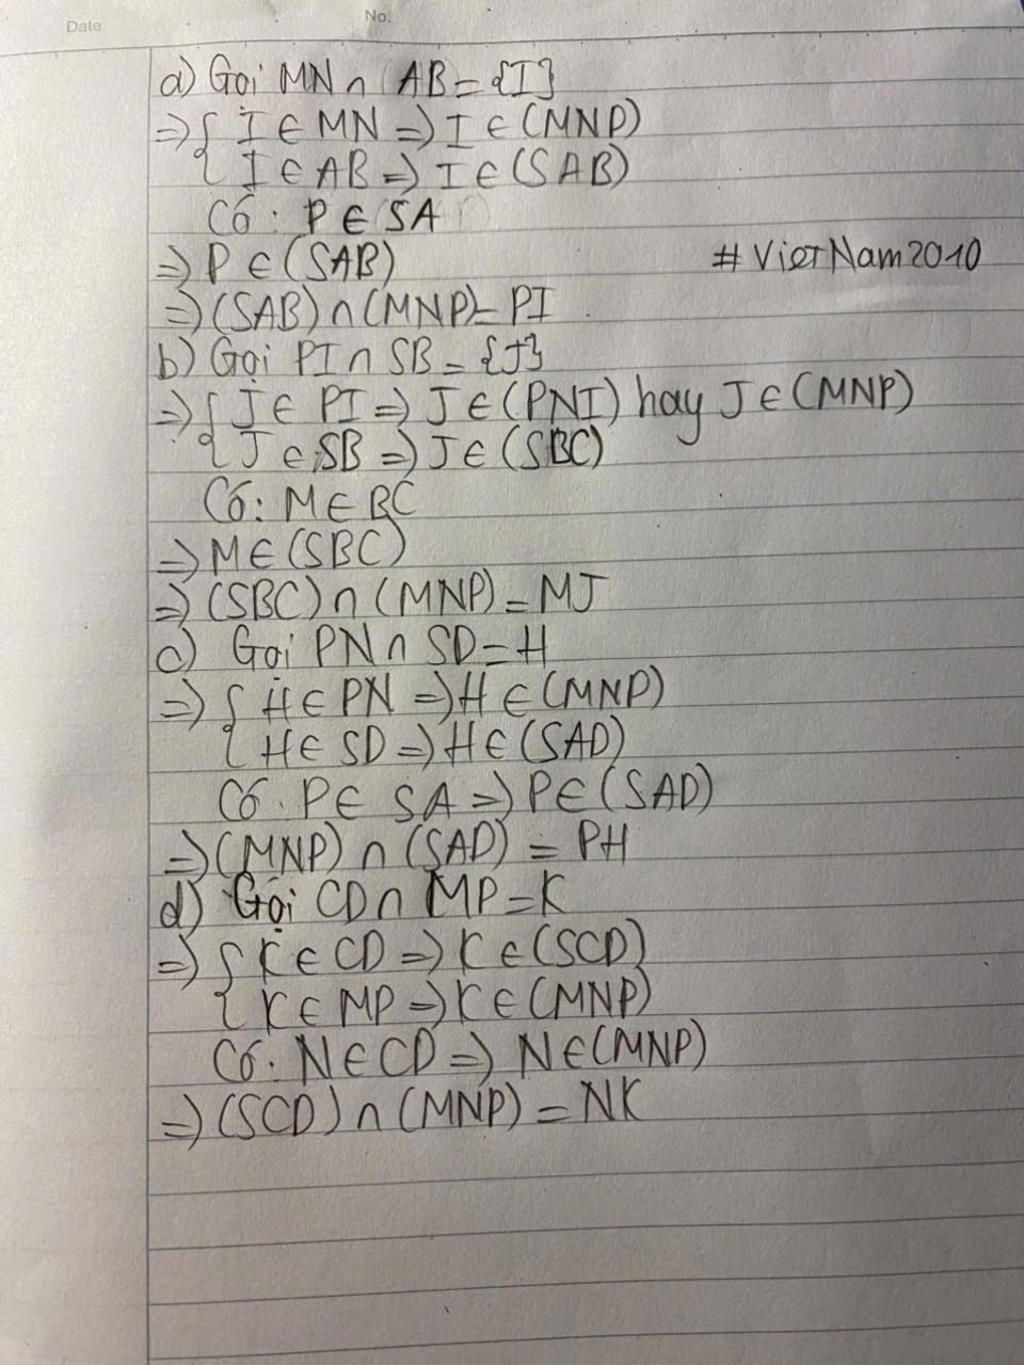 Date
No.
a) Gọi MN ∩ AB = {I}
=> { I ∈ MN => I ∈ (MNP)
{ I ∈ AB => I ∈ (SAB)
Có: P ∈ SA
=> P ∈ (SAB)
# VieTNam2010
=> (SAB) ∩ (MNP) = PI
b) Gọi PI ∩ SB = {J}
=> { J ∈ PI => J ∈ (PNI) hay J ∈ (MNP)
{ J ∈ SB => J ∈ (SBC)
Có: M ∈ BC
=> M ∈ (SBC)
=> (SBC) ∩ (MNP) = MJ
c) Gọi PN ∩ SD = H
=> { H ∈ PN => H ∈ (MNP)
{ H ∈ SD => H ∈ (SAD)
Có: P ∈ SA => P ∈ (SAD)
=> (MNP) ∩ (SAD) = PH
d) Gọi CD ∩ MP = K
=> { K ∈ CD => K ∈ (SCD)
{ K ∈ MP => K ∈ (MNP)
Có: N ∈ CD => N ∈ (MNP)
=> (SCD) ∩ (MNP) = NK